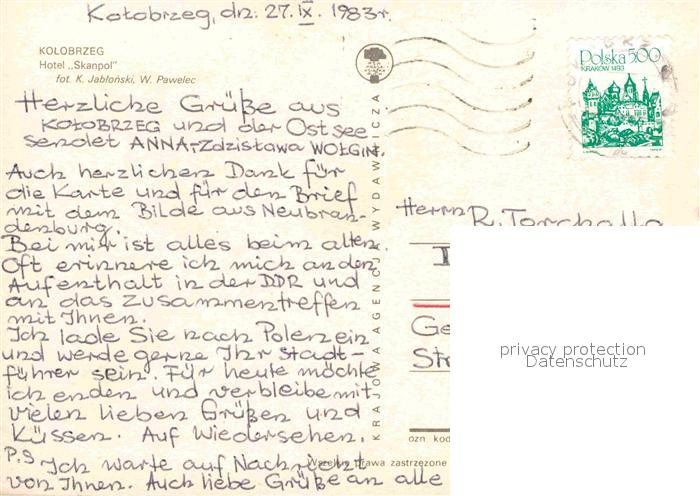 Kołobrzeg, dn: 27.IX. 1983r.
KOŁOBRZEG
Hotel „Skanpol"
fot. K. Jabłoński, W. Pawelec
Polska 5,00
KRAKÓW 1493
Herzliche Grüße aus
KOŁOBRZEG und der Ostsee
sendet ANNA-Zdzisława WOŁGIN.
Auch herzlichen Dank für
die Karte und für den Brief
mit dem Bilde aus Neubran-
denburg.
Bei mir ist alles beim alten.
Oft erinnere ich mich an den
Aufenthalt in der DDR und
an das Zusammentreffen
mit Ihnen.
Ich lade Sie nach Polen ein
und werde gerne Ihr Stadt-
führer sein. Für heute möchte
ich enden und verbleibe mit
vielen lieben Grüßen und
Küssen. Auf Wiedersehen.
P.S Ich warte auf Nachricht
von Ihnen. Auch liebe Grüße an alle
KRAJOWA AGENCJA WYDAWNICZA
Herrn R. Torchalla
Ge
Str
ozn kod
Wszelkie prawa zastrzeżone
privacy protection
Datenschutz